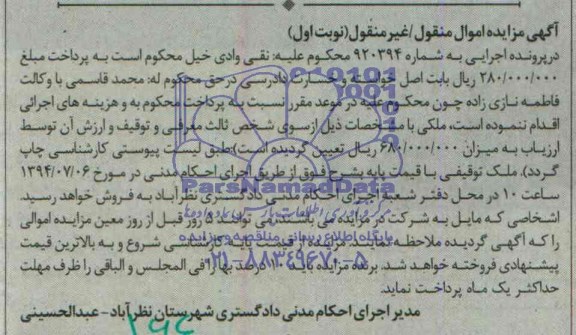 آگهی مزایده اموال منقول/غیرمنقول(نوبت اول)
درپرونده اجرایی به شماره ۹۲۰۳۹۴ محکوم علیه: نقی وادی خیل محکوم است به پرداخت مبلغ
۲۸۰/۰۰۰/۰۰۰ ریال بابت اصل خواسته و خسارت دادرسی درحق محکوم له: محمد قاسمی با وکالت
فاطمه نازی زاده چون محکوم علیه در موعد مقرر نسبت به پرداخت محکوم به و هزینه های اجرائی
اقدام ننموده است، ملکی با مشخصات ذیل ازسوی شخص ثالث معرفی و توقیف و ارزش آن توسط
ارزیاب به میزان ۶۸۰/۰۰۰/۰۰۰ ریال تعیین گردیده است):طبق لیست پیوستی کارشناسی چاپ
گردد). ملک توقیفی با قیمت پایه بشرح فوق از طریق اجرای احکام مدنی در مورخ ۱۳۹۴/۰۷/۰۶
ساعت ۱۰ در محل دفتر شعبه اجرای احکام مدنی دادگستری نظرآباد به فروش خواهد رسید.
اشخاصی که مایل به شرکت در مزایده می باشند می توانند روز قبل از روز معین مزایده اموالی
را که آگهی گردیده ملاحظه نمایند. مزایده از قیمت پایه کارشناسی شروع و به بالاترین قیمت
پیشنهادی فروخته خواهد شد. برنده مزایده باید ۱۰ درصد بها را فی المجلس و الباقی را ظرف مهلت
حداکثر یک ماه پرداخت نماید.
مدیر اجرای احکام مدنی دادگستری شهرستان نظرآباد- عبدالحسینی
ParsNamadData
پایگاه اطلاع رسانی مناقصه و مزایده
۰۲۱-۸۸۳۴۹۶۷۰-۵